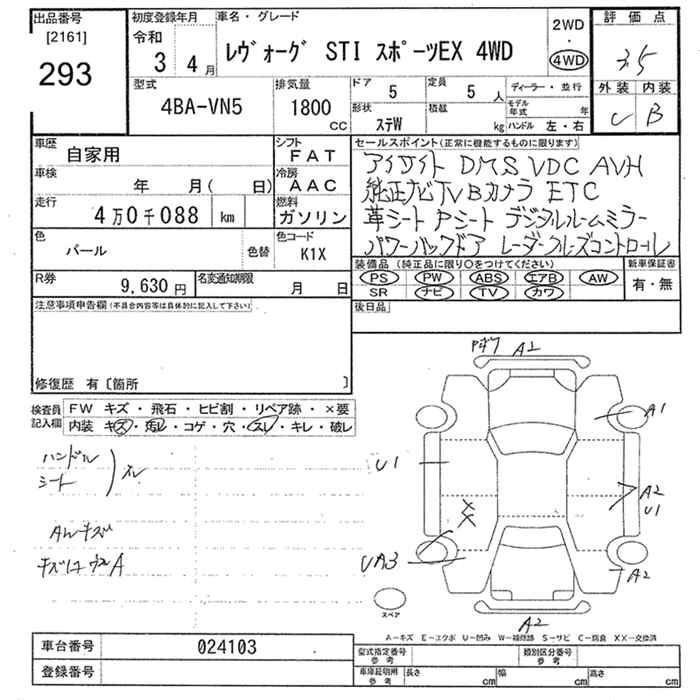 出品番号
[2161]
293
初度登録年月
令和
3年 4月
車名・グレード
レヴォーグ STI スポーツEX 4WD
2WD
・
4WD
評価点
3.5
外装 内装
C B
型式
4BA-VN5
排気量
1800
CC
ドア
5
定員
5 人
形状
ステW
積載
kg
ディーラー・並行
モデル年式 年
ハンドル 左・右
車歴
自家用
シフト
FAT
車検
年 月( 日)
冷房
AAC
走行
4万0千088 km
燃料
ガソリン
色
パール
色替
色コード
K1X
R券
9,630 円
名変通知期限
月 日
セールスポイント(正常に機能するものに限ります)
アイサイト DMS VDC AVH
純正ナビTVBカメラ ETC
革シート Pシート デジタルルームミラー
パワーバックドア レーダークルーズコントロール
装備品(純正品に限り○をつけてください)
PS PW ABS エアB AW
SR ナビ TV カワ
新車保証書
有・無
後日品
注意事項申告欄(不具合内容等は具体的に記入して下さい)
修復歴 有〔箇所 〕
検査員記入欄
FW キズ・飛石・ヒビ割・リペア跡・×要
内装 キズ・汚レ・コゲ・穴・スレ・キレ・破レ
ハンドル
シート
スレ
AWキズ
A1
A1
U1
A2
U1
UA3
A2
A2
スペア
A－キズ E－エクボ U－凹み W－補修跡 S－サビ C－腐食 XX－交換済
車台番号
024103
登録番号
型式指定番号
参考
類別区分番号
参考
車庫証明用
参考
長さ cm
幅 cm
高さ cm